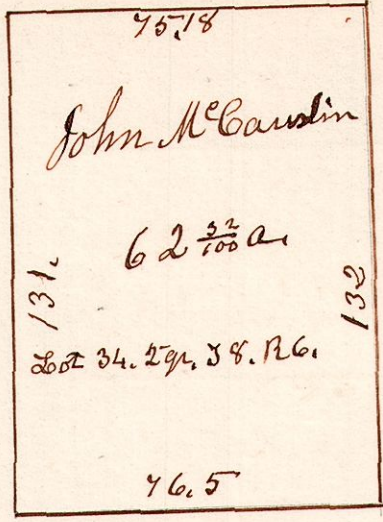 75,18
John McCauslin
62 32/100 a.
131.
132
Lot 34. 2 qr. T 8. R 6.
76.5